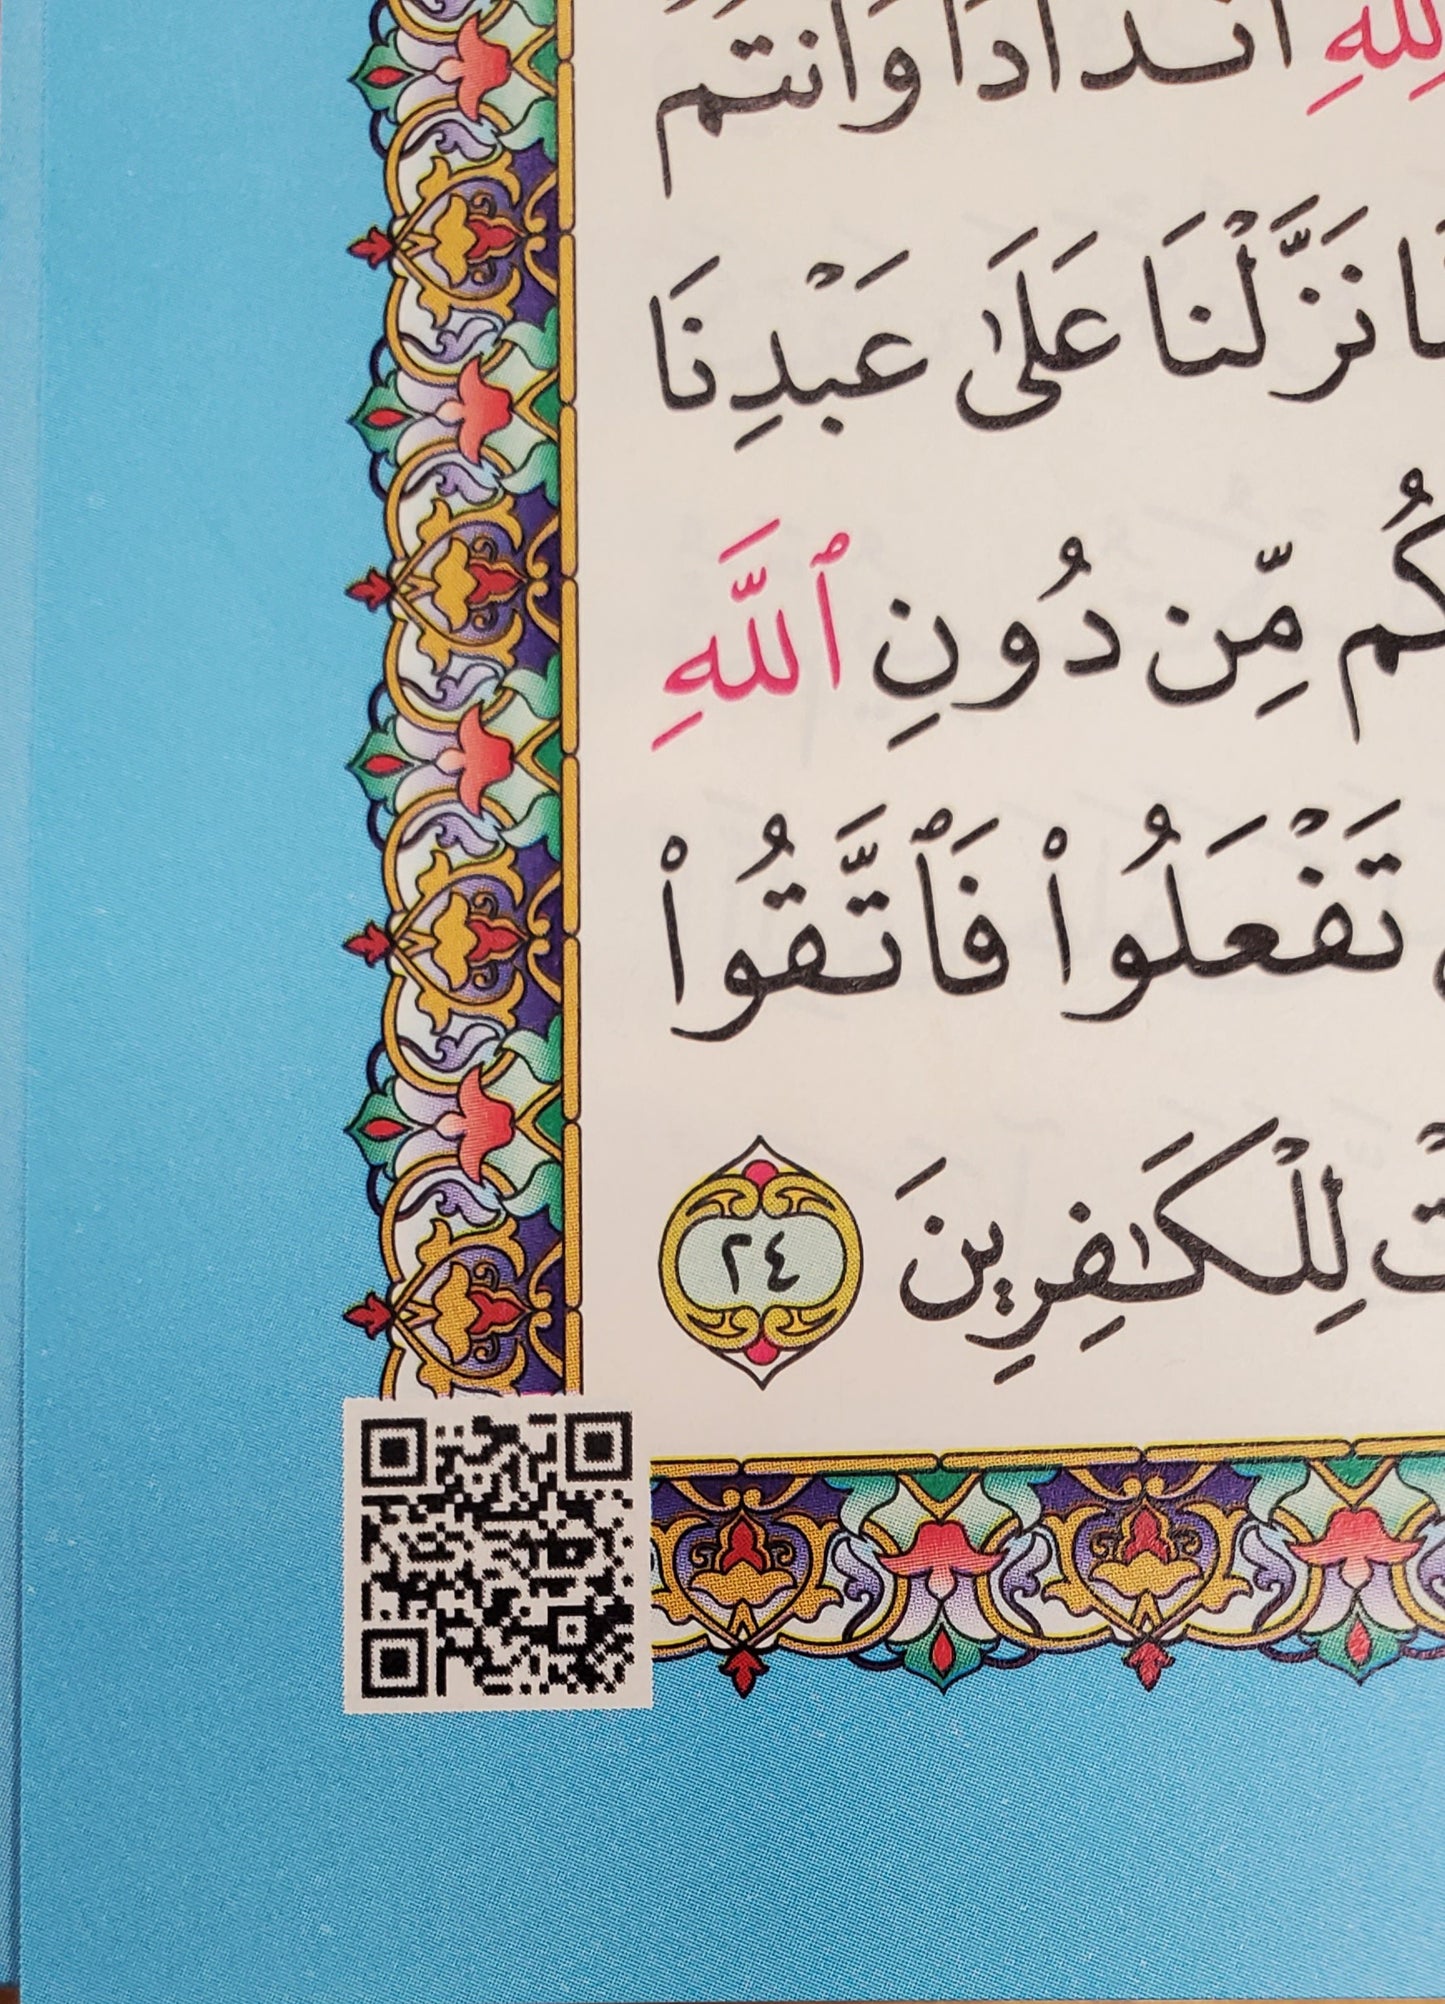 لِلَّهِ أَندَادًا وَأَنتُمْ
نَزَّلْنَا عَلَىٰ عَبْدِنَا
مِّن دُونِ ٱللَّهِ
تَفْعَلُوا۟ فَٱتَّقُوا۟
لِلْكَـٰفِرِينَ ٢٤